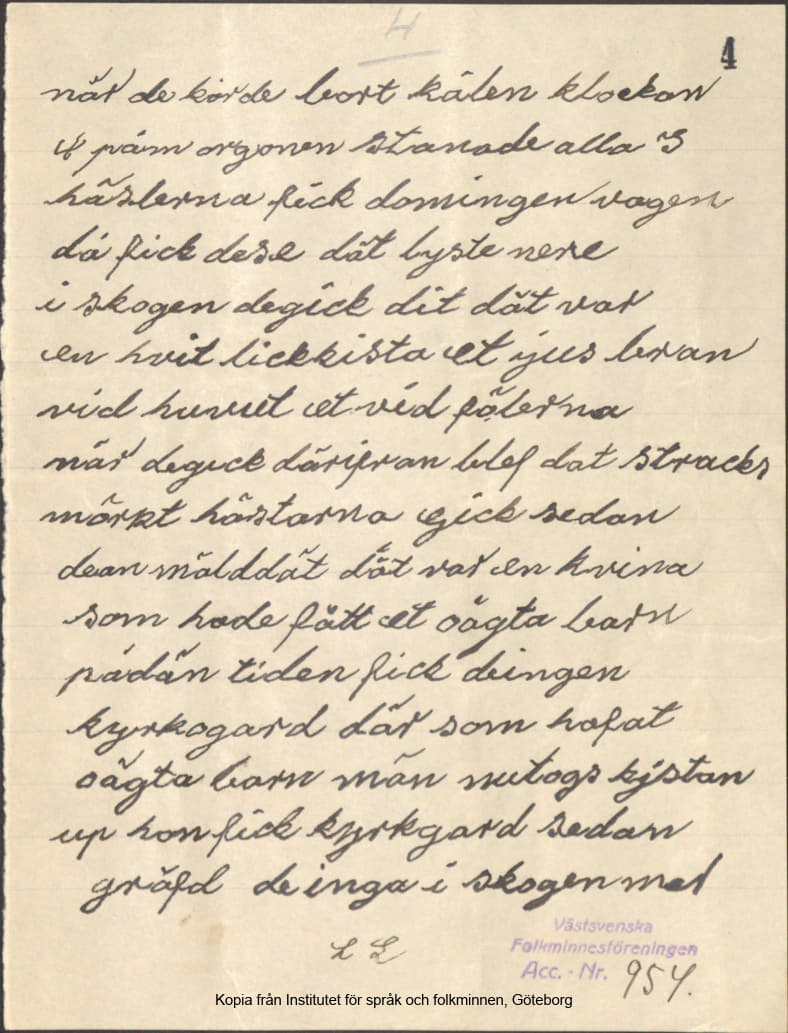 4
4
när de körde bort kålen klockan
på morgonen stanade alla 3
hästerna fick domingen vagen
då fick dese dät lyste nere
i skogen degick dit dät var
en hvit lickkista et ljus bran
vid huvut et vid föterna
när degick därifran blef dat stracks
mörkt hästarna gick sedan
dean mälddät dät var en kvina
som hade fått et oägta barn
pådän tiden fick deingen
kyrkogard där som hafat
oägta barn män nutogs kjstan
up hon fick kyrkgard sedan
gräfd de inga i skogen mer
L L
Västsvenska
Folkminnesföreningen
Acc.-Nr. 954.
Kopia från Institutet för språk och folkminnen, Göteborg